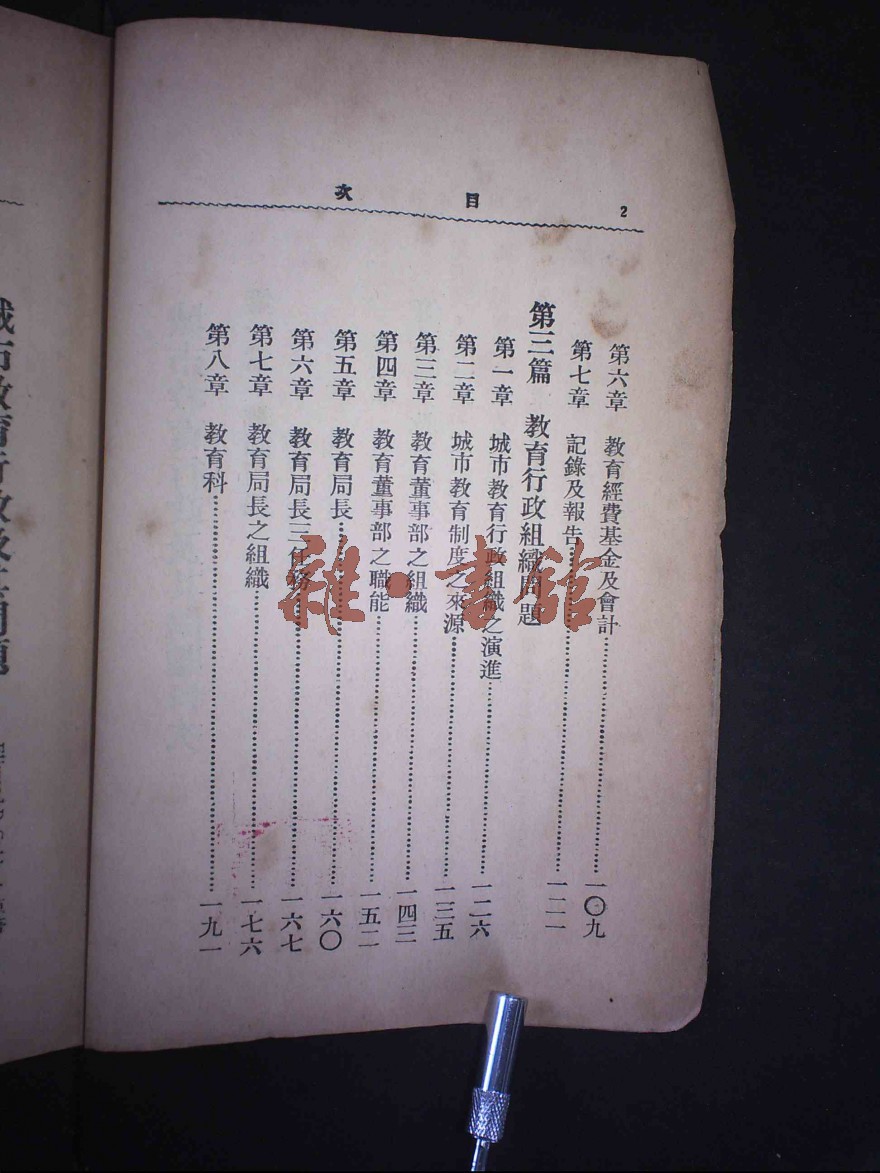 目次
2
第六章 教育經費基金及會計……一〇九
第七章 記錄及報告……一二一
第三篇 教育行政組織問題
第一章 城市教育行政組織之演進……一二六
第二章 城市教育制度之來源……一三五
第三章 教育董事部之組織……一四三
第四章 教育董事部之職能……一五二
第五章 教育局長……一六〇
第六章 教育局長三任務……一六七
第七章 教育局長之組織……一七六
第八章 教育科……一九一
雜·書館